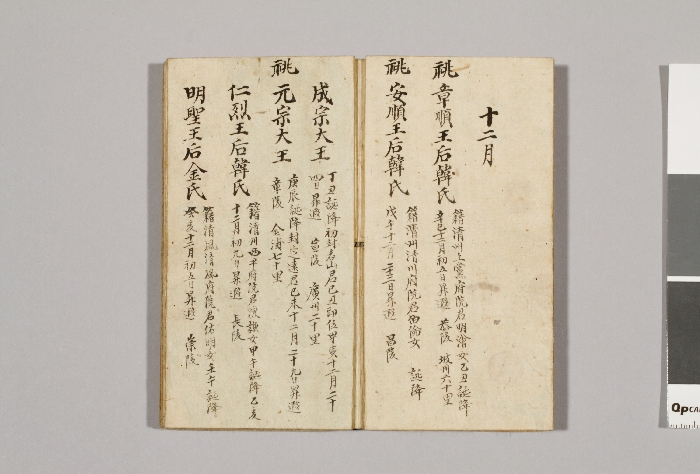 十二月
祧 章順王后韓氏
籍清州上黨府院君明澮女乙丑誕降
辛巳十二月初五日昇遐 恭陵 坡州六十里
祧 安順王后韓氏
籍清州清川府院君伯倫女 誕降
戊午十二月二十三日昇遐 昌陵
成宗大王
丁丑誕降初封者山君己丑即位甲寅十二月二十
四日昇遐 宣陵 廣州二十里
祧 元宗大王
庚辰誕降封定遠君己未十二月二十九日昇遐
章陵 金浦七十里
仁烈王后韓氏
籍清州西平府院君浚謙女甲午誕降乙亥
十二月初九日昇遐 長陵
明聖王后金氏
籍清風清風府院君佑明女壬午誕降
癸亥十二月初五日昇遐 崇陵